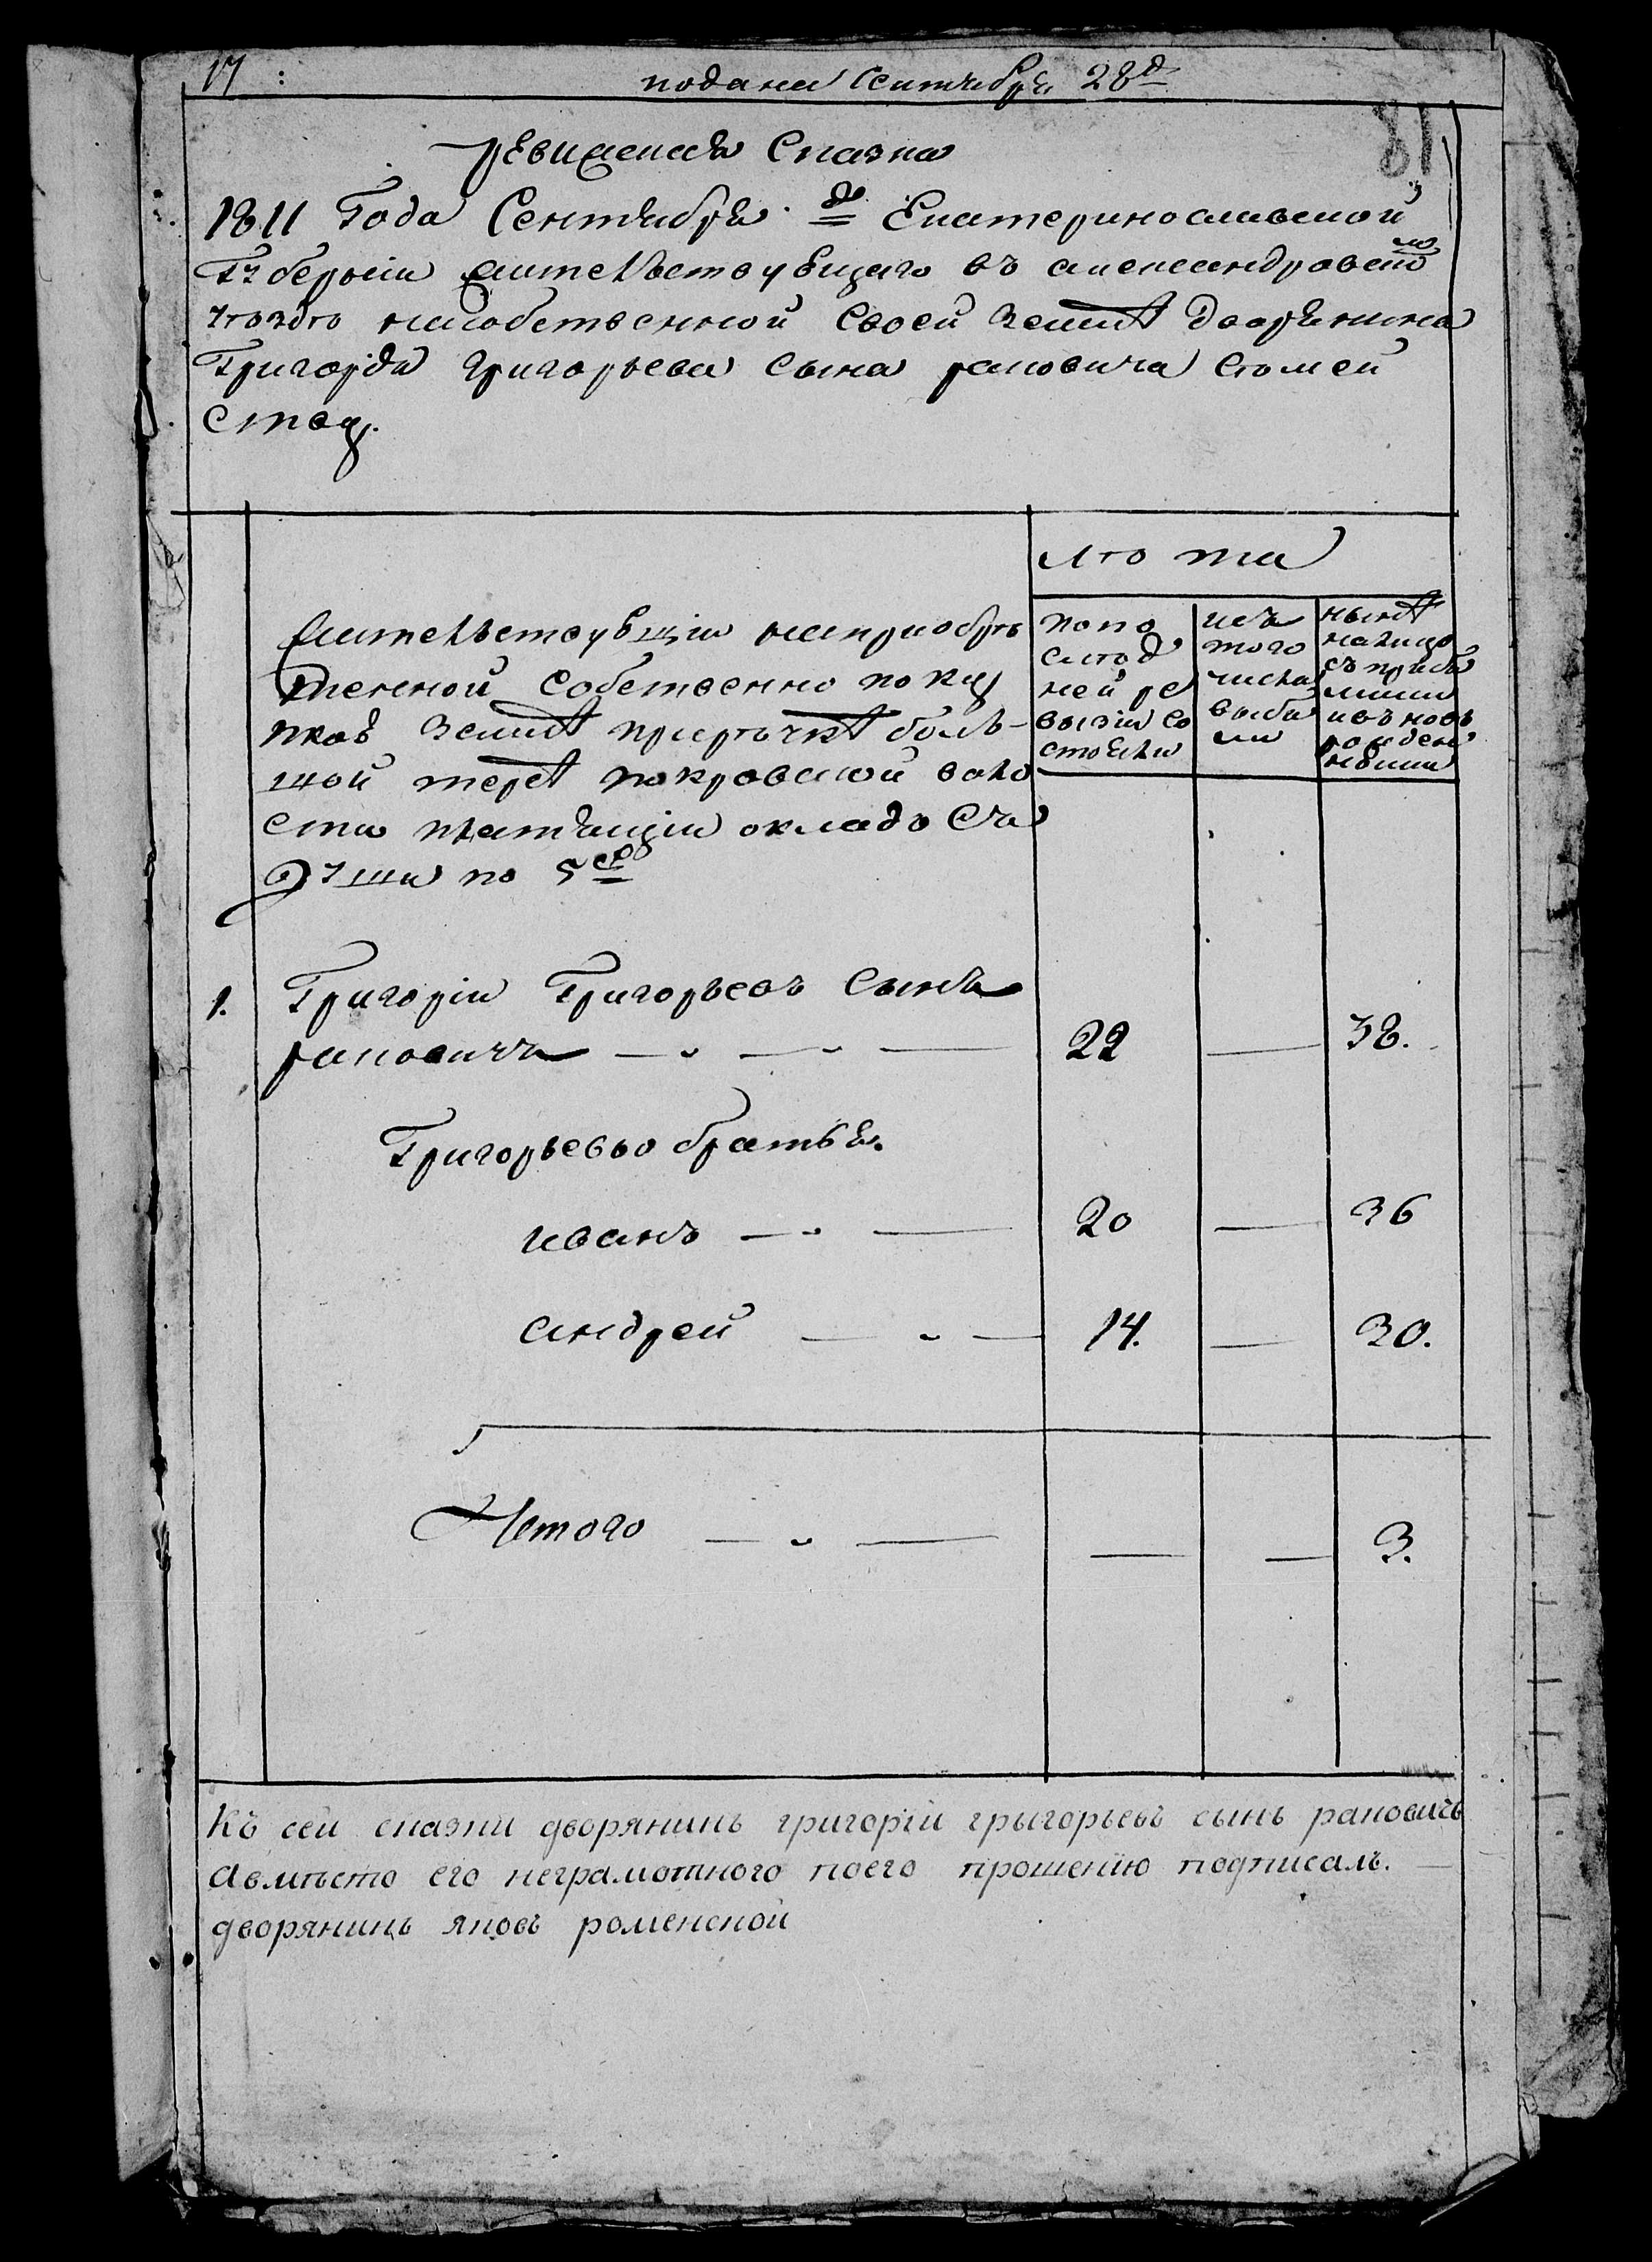 17 :
подана Сентября 28д
81
ревижская Сказка
1811 Года Сентября дня Екатеринославской
Губерніи жительствующаго въ александровском
уѣздѣ насобственной своей землѣ дворянина
Григорія григорьева сына раковича Стомей
ствоу.
лѣ та
жительствующіи наприобрѣ
тенной собственно поку
пков землѣ прирѣчкѣ боль-
шой терсѣ покровской воло
сти платящіи окладъ Съ
души по 5ср
попо
слѣд
ней ре
визіи со
стояли
исъ
того
числа
выбы
ли
нынѣ
налицо
съ прибы
лыми
ивновь
рожден
ными
1. Григоріи Григорьевъ Сынъ
раковичъ — — — 22 — 38.
Григорьевы братья.
иванъ — — 20 — 36
андрей — — 14. — 30.
Итого — — — — 3.
Къ сеи сказки дворянинъ григоріи грыгорьевъ сынъ раковичъ
авмѣсто его неграмотного поего прошенію подписалъ.
дворянинъ яковъ роменской